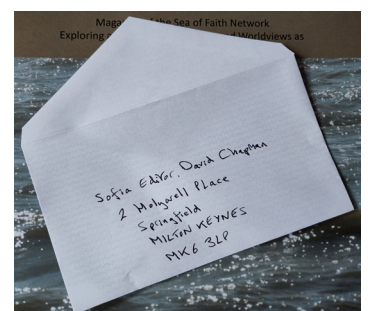 the Sea of Faith Network
Exploring Worldviews as
Sofia Editor, David Chapman
2 Holywell Place
Springfield
MILTON KEYNES
MK6 3LP